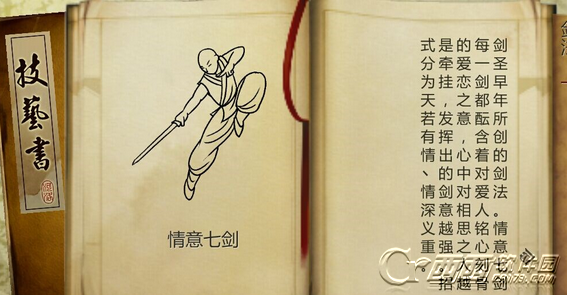 技藝書
情意七剑
剑圣早年所创的剑法。情意七剑
每一剑都酝含着对爱人铭心刻骨
的爱恋之意，心中对相思之人越
是牵挂，发挥出的剑意越强。招
式分为天若有情、情深义重。
西西软件园